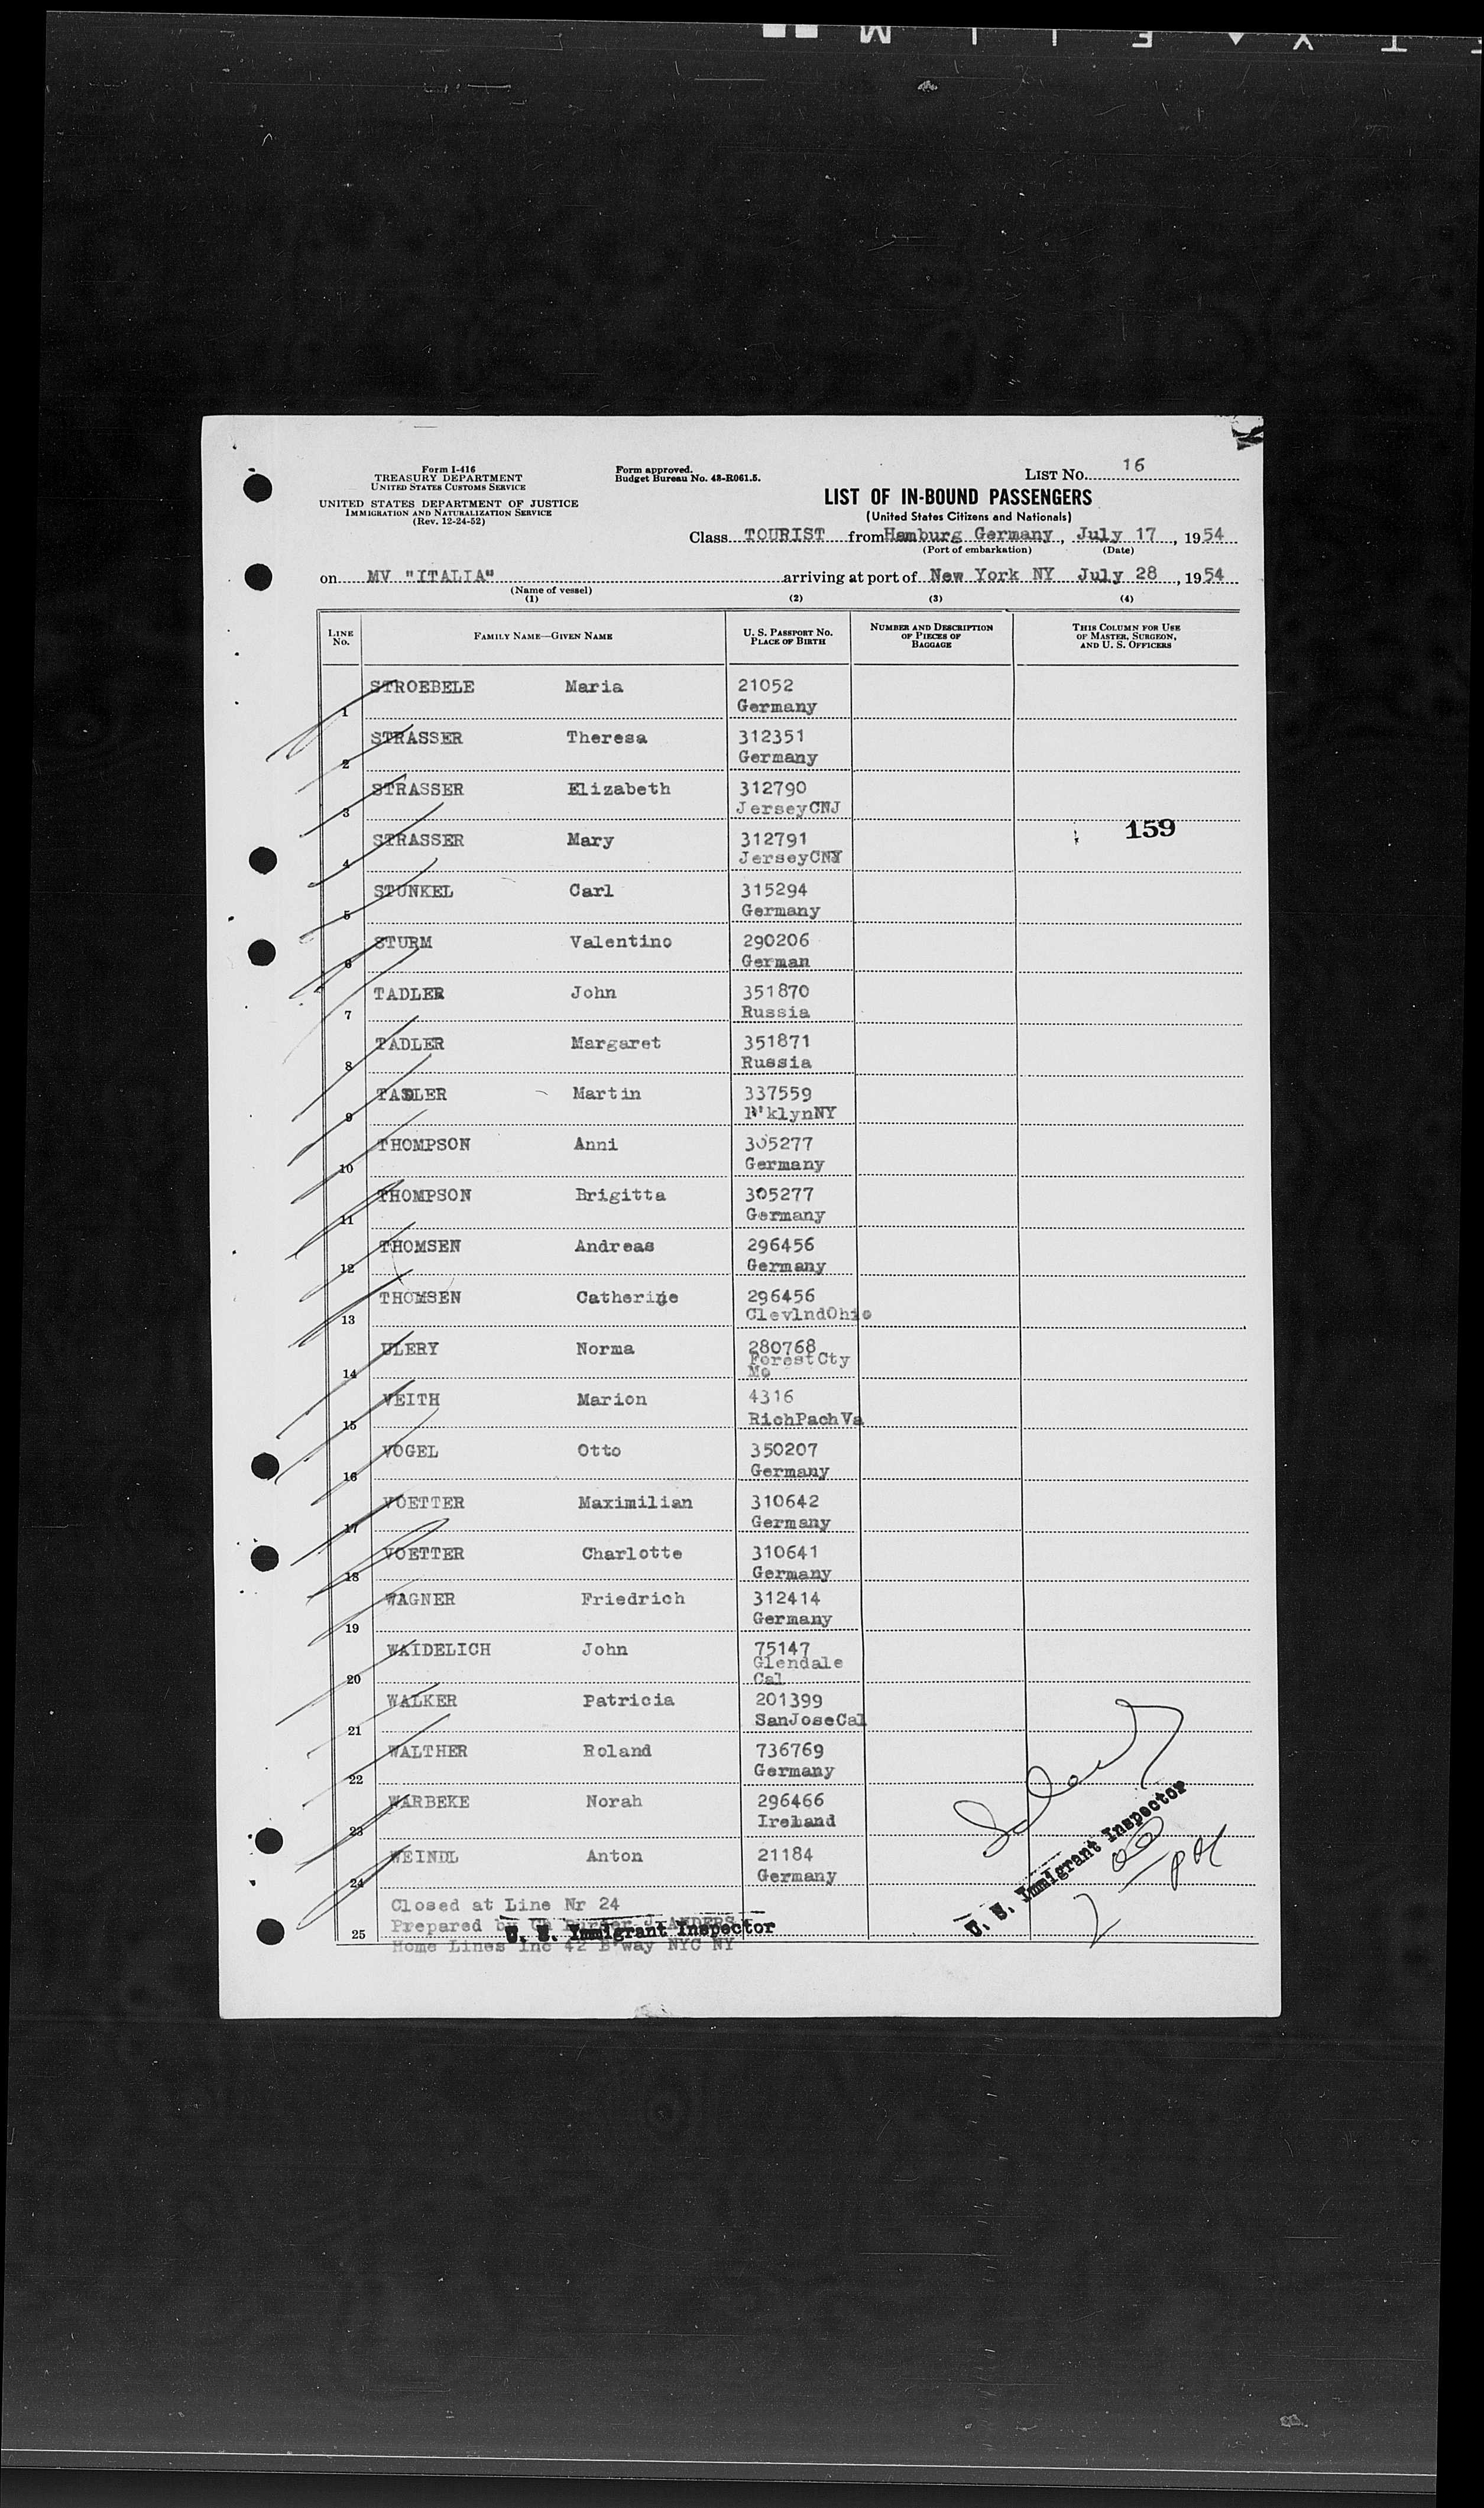 Form I-416
TREASURY DEPARTMENT
UNITED STATES CUSTOMS SERVICE
UNITED STATES DEPARTMENT OF JUSTICE
IMMIGRATION AND NATURALIZATION SERVICE
(Rev. 12-24-52)
Form approved.
Budget Bureau No. 43-R061.5.
LIST NO. 16
LIST OF IN-BOUND PASSENGERS
(United States Citizens and Nationals)
Class TOURIST from Hamburg Germany, July 17, 1954
(Port of embarkation) (Date)
on MV "ITALIA" arriving at port of New York NY July 28, 1954
(Name of vessel)
(1) (2) (3) (4)
LINE NO. FAMILY NAME—GIVEN NAME U. S. PASSPORT NO. PLACE OF BIRTH NUMBER AND DESCRIPTION OF PIECES OF BAGGAGE THIS COLUMN FOR USE OF MASTER, SURGEON, AND U. S. OFFICERS
1 STROEBELE Maria 21052
Germany
2 STRASSER Theresa 312351
Germany
3 STRASSER Elizabeth 312790
JerseyCNJ
159
4 STRASSER Mary 312791
JerseyCN
5 STUNKEL Carl 315294
Germany
6 STURM Valentino 290206
German
7 TADLER John 351870
Russia
8 TADLER Margaret 351871
Russia
9 TADLER Martin 337559
B'klynNY
10 THOMPSON Anni 305277
Germany
11 THOMPSON Brigitta 305277
Germany
12 THOMSEN Andreas 296456
Germany
13 THOMSEN Catherine 296456
ClevlndOhio
14 ULERY Norma 280768
ForestCty
Mo
15 VEITH Marion 4316
RichPachVa
16 VOGEL Otto 350207
Germany
17 VOETTER Maximilian 310642
Germany
18 VOETTER Charlotte 310641
Germany
19 WAGNER Friedrich 312414
Germany
20 WAIDELICH John 75147
Glendale
Cal
21 WALKER Patricia 201399
SanJoseCal
22 WALTHER Roland 736769
Germany
23 WARBEKE Norah 296466
Ireland
24 WEINDL Anton 21184
Germany
Closed at Line Nr 24
25 Prepared by J ANDERS
Home Lines Inc 42 B'way NYC NY
U. S. Immigrant Inspector
U. S. Immigrant Inspector